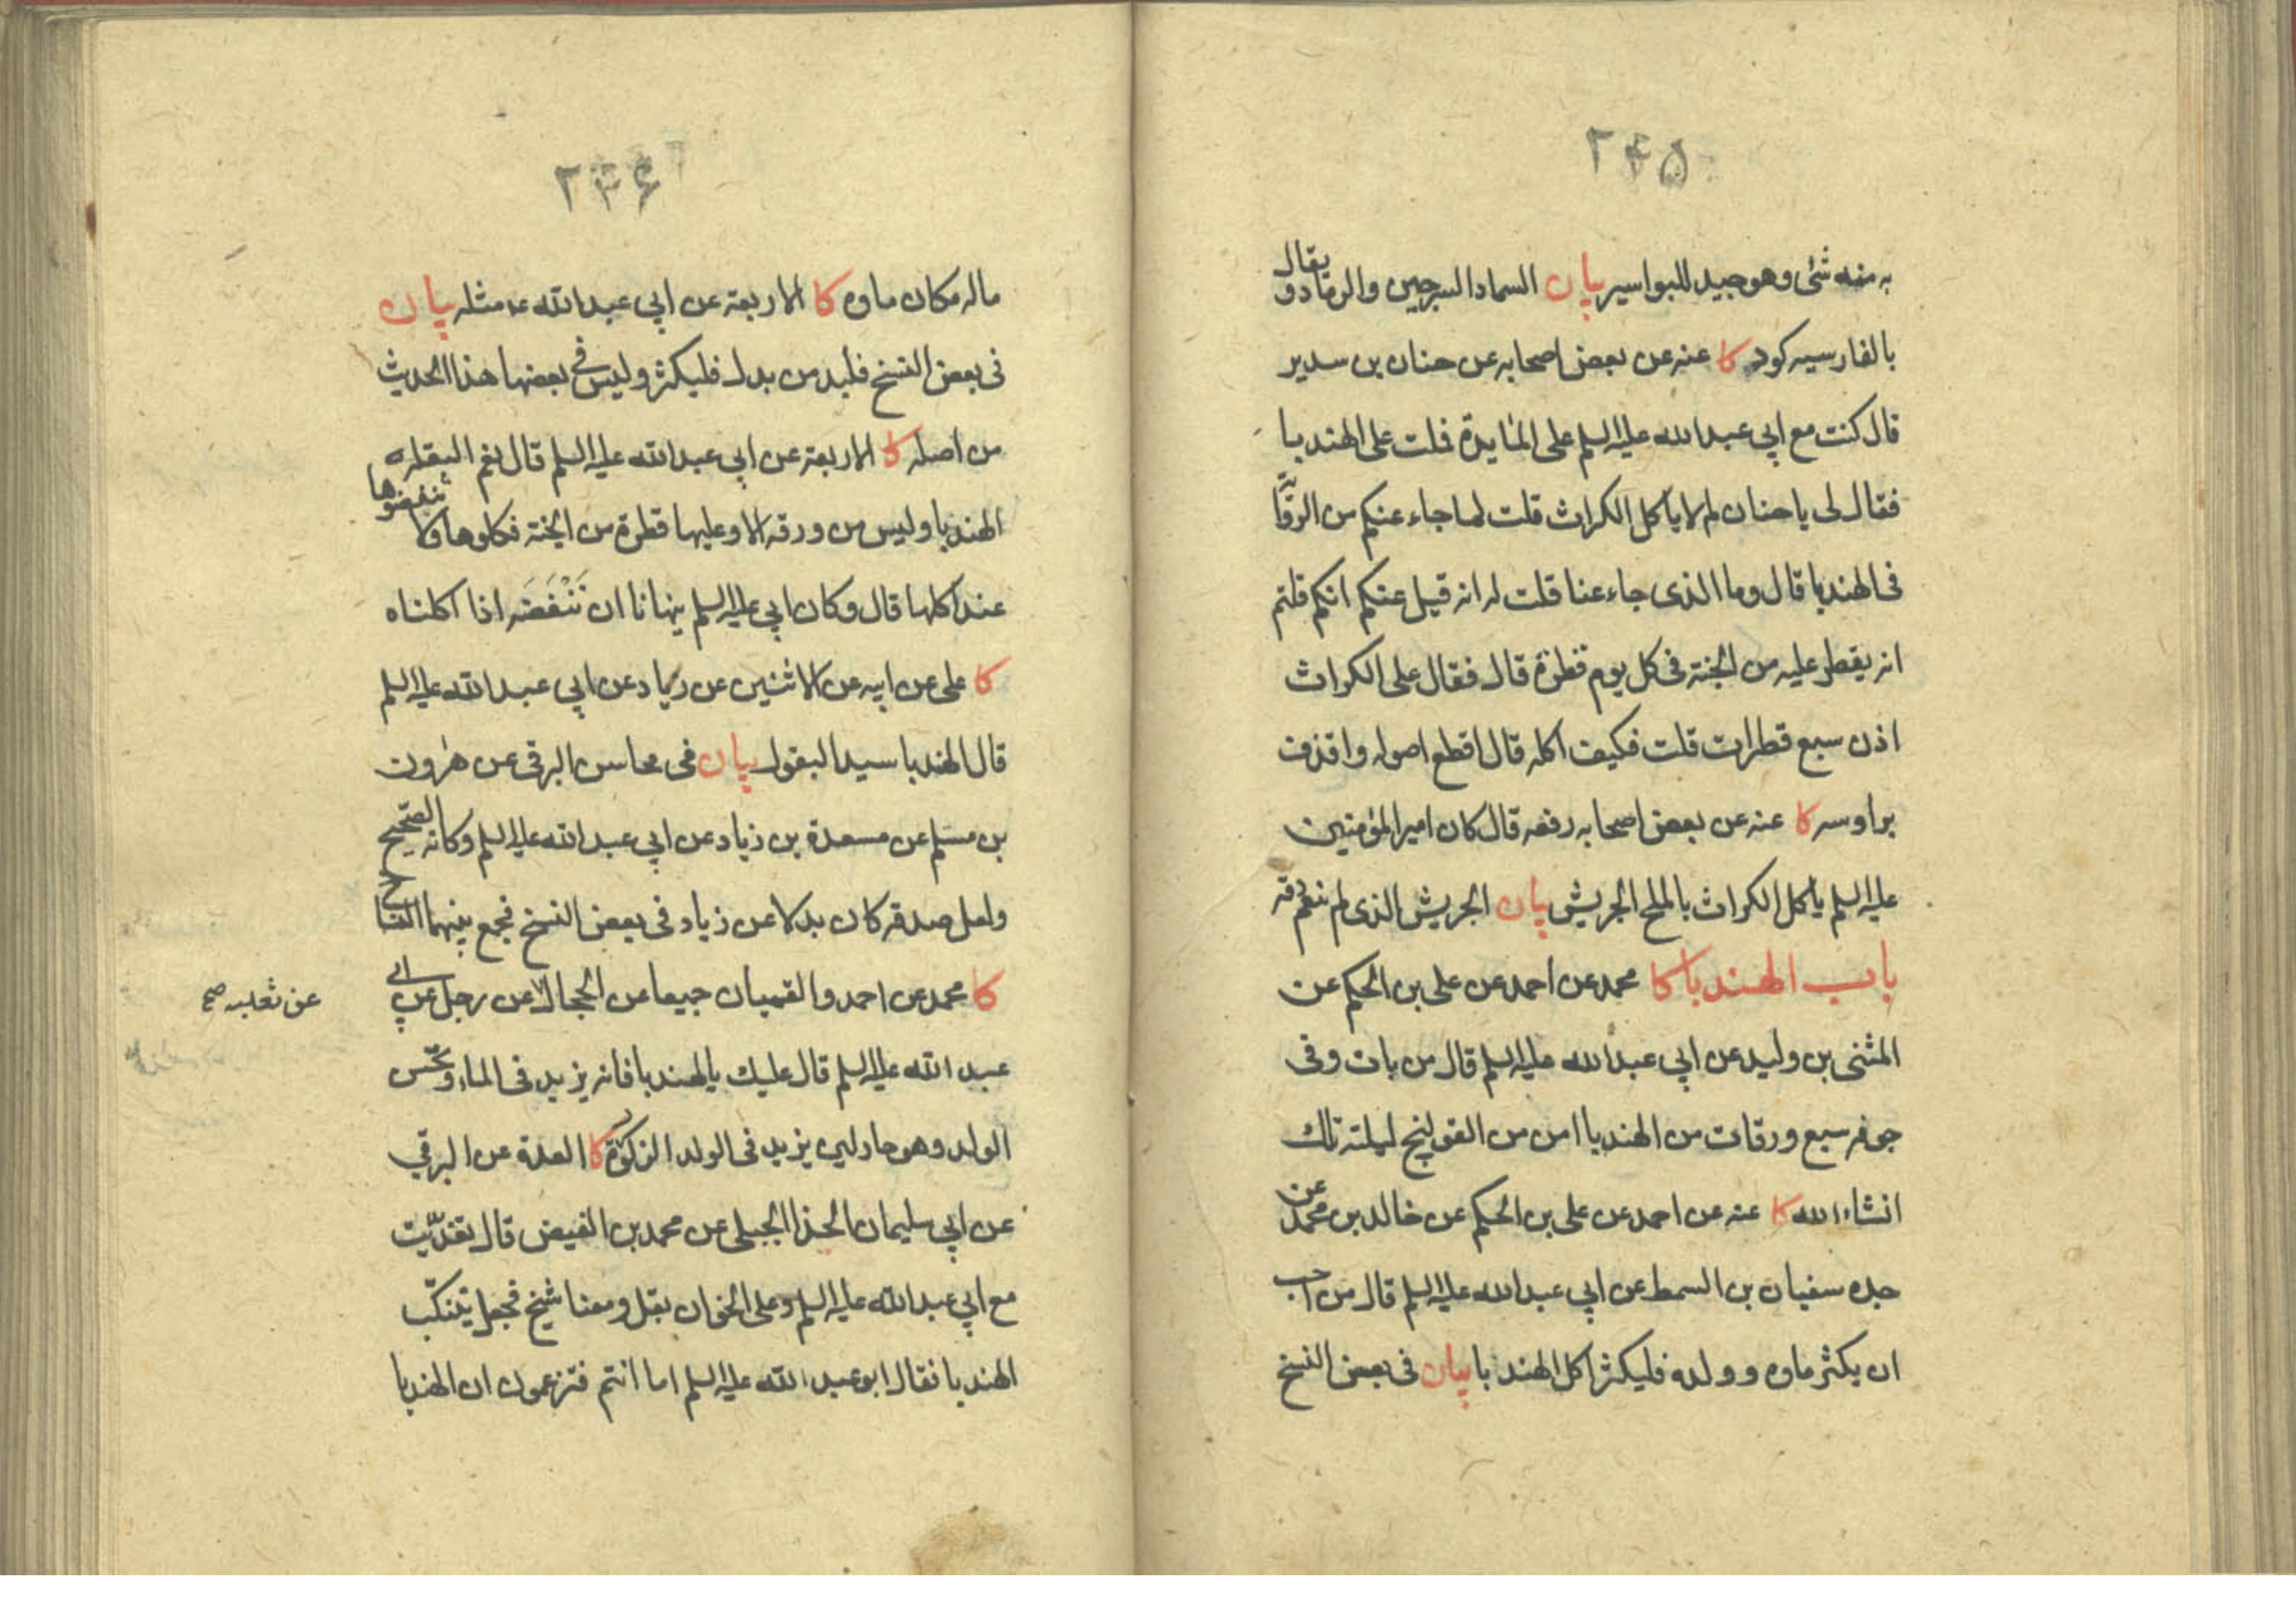 ۲۴۵
به منه شئ وهو جيد للبواسير بيان السماد السرجين والرماد ويقال
بالفارسيه كود كا عنه عن بعض اصحابه عن حنان بن سدير
قال كنت مع ابي عبد الله عليه السلم على المايدة فملت على الهندبا
فقال لى يا حنان لم لا ياكل الكراث قلت لما جاء عنكم من الرواية
فى الهندبا قال وما الذى جاء عنا قلت له انه قيل عنكم انكم قلتم
انه يقطر عليه من الجنة فى كل يوم قطرة قال فقال على الكراث
اذن سبع قطرات قلت فكيف اكله قال اقطع اصوله واقذف
براوسه كا عنه عن بعض اصحابه رفعه قال كان امير المؤمنين
عليه السلم ياكل الكراث بالملح الجريش بيان الجريش الذى لم ينعم دقه
باب الهندبا كا محمد عن احمد عن على بن الحكم عن
المثنى بن وليد عن ابي عبد الله عليه السلم قال من بات وفى
جوفه سبع ورقات من الهندبا امن من القولنج ليلته تلك
انشاء الله كا عنه عن احمد عن على بن الحكم عن خالد بن محمد عن
جده سفيان بن السمط عن ابي عبد الله عليه السلم قال من احب
ان يكثر ماوه وولده فليكثر اكل الهندبا بيان فى بعض النسخ
۲۴۶
ماله مكان ماوه كا الاربعة عن ابي عبد الله ع مثله بيان
فى بعض النسخ فليدمن بدل فليكثر وليس فى بعضها هذا الحديث
من اصله كا الاربعة عن ابي عبد الله عليه السلم قال نعم البقله
الهندبا وليس من ورقة الا وعليها قطرة من الجنة فكلوها ولا تنفضوها
عند اكلها قال وكان ابي عليه السلم ينهانا ان نَنْفَضَه اذا اكلناه
كا على عن ابيه عن الاثنين عن زياد عن ابي عبد الله عليه السلم
قال الهندبا سيد البقول بيان فى محاسن البرقى عن هرون
بن مسلم عن مسعدة بن زياد عن ابي عبد الله عليه السلم وكانه الصحيح
ولعل صدقه كان بدلا عن زياد فى بعض النسخ فجمع بينهما النساخ
كا محمد عن احمد والقميان جميعا عن الحجال عن رجل عن ابي
عن ثعلبه صح
عبد الله عليه السلم قال عليك بالهندبا فانه يزيد فى الماء ويحسن
الولد وهو حار لين يزيد فى الولد الذكورة كا العدة عن البرقي
عن ابي سليمان الحذا الجبلى عن محمد بن الفيض قال تغديت
مع ابي عبد الله عليه السلم وعلى الخوان بقل ومعنا شيخ فجعل يتنكب
الهندبا فقال ابو عبد الله عليه السلم اما انتم فتزعمون ان الهندبا